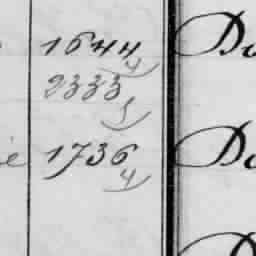 1644 Do
4
2333
5
ie 1736 Do
4